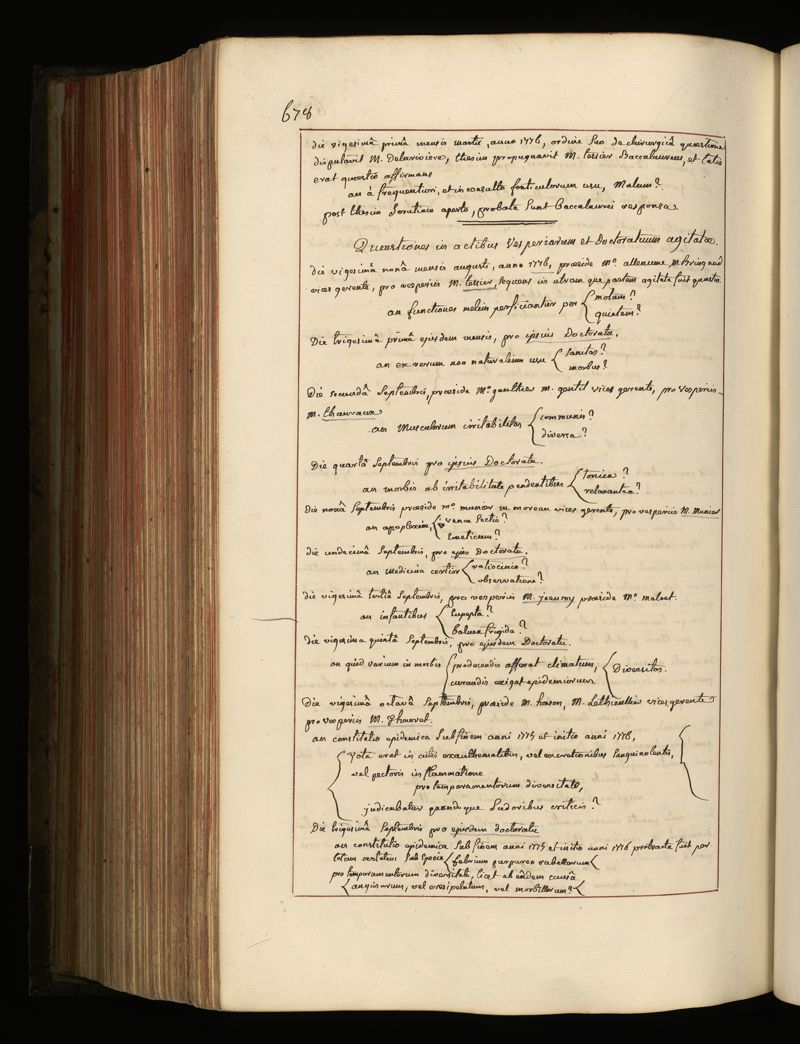 678
die vigesimâ primâ mensis martii, anno 1776, ordine suo de chirurgicâ quæstione
disputavit M. Delariviere, thesim propugnavit M. tessier Baccalaureus, et talis
erat quæstio affirmans
an à frequentiori, et inconsulto fonticulorum usu, Malum?
post thesim scrutinio aperto, probata sunt baccalaurei responsa.
Quæstiones in actibus Vesperiarum et Doctoratuum agitatæ.
die vigesimâ nonâ mensis augusti, anno 1776, præside Mo. alleaume, M.
vices gerente, pro vesperiis M. tessier, sequens in utram que partem agitata fuit quæstio
an functiones melius perficiantur per { motum?
quietem?
Die trigesimâ primâ ejusdem mensis, pro ipsius Doctoratu.
an ex rerum non naturalium usu { sanitas?
morbus?
Die secundâ Septembris, præside Mo. gaulthier m. gentil vices gerente, pro vesperiis
M. Chauvaux
an Musculorum irritabilitas { communis?
diversa?
Die quartâ Septembris pro ipsius Doctoratu.
an morbis ab irritabilitate pendentibus { tonica?
relaxantia?
Die nonâ Septembris præside mo. munier m. moreau vices gerente, pro vesperiis M. Munier
an apoplexiæ, { venæ sectio?
Emeticum?
die undecimâ Septembris, pro ejus Doctoratu.
an Medicina certior { ratiocinio?
observatione?
die vigesimâ tertiâ Septembris, pro vesperiis M. jeanroy præside Mo. maloet.
an infantibus {
balnea frigida?
die vigesima quintâ Septembris, pro ejusdem Doctoratu.
an quid varium in morbis { producendis afferat climatum, { Diversitas.
curandis exigat epidemiarum
Die vigesimâ octavâ Septembris, præside M. hazon, M. Lethieullier vices gerente
pro vesperiis M.
an constitutio epidemica sub finem anni 1775 et initio anni 1776,
{ Tota erat in cutis exanthematibus, vel excretionibus sanguinolentis, {
vel pectoris inflammatione
pro temperamentorum diversitate,
judicabatur quandoque sudoribus criticis?
Die trigesimâ Septembris pro ejusdem doctoratu
an constitutio epidemica sub finem anni 1775 et initio anni 1776 protracta fuit per
totam æstatem sub specie { febrium purpureo rubellarum {
pro temperamentorum diversitate, licet ab eâdem causâ
{ anginarum, vel eresipelatum, vel morbillorum? {